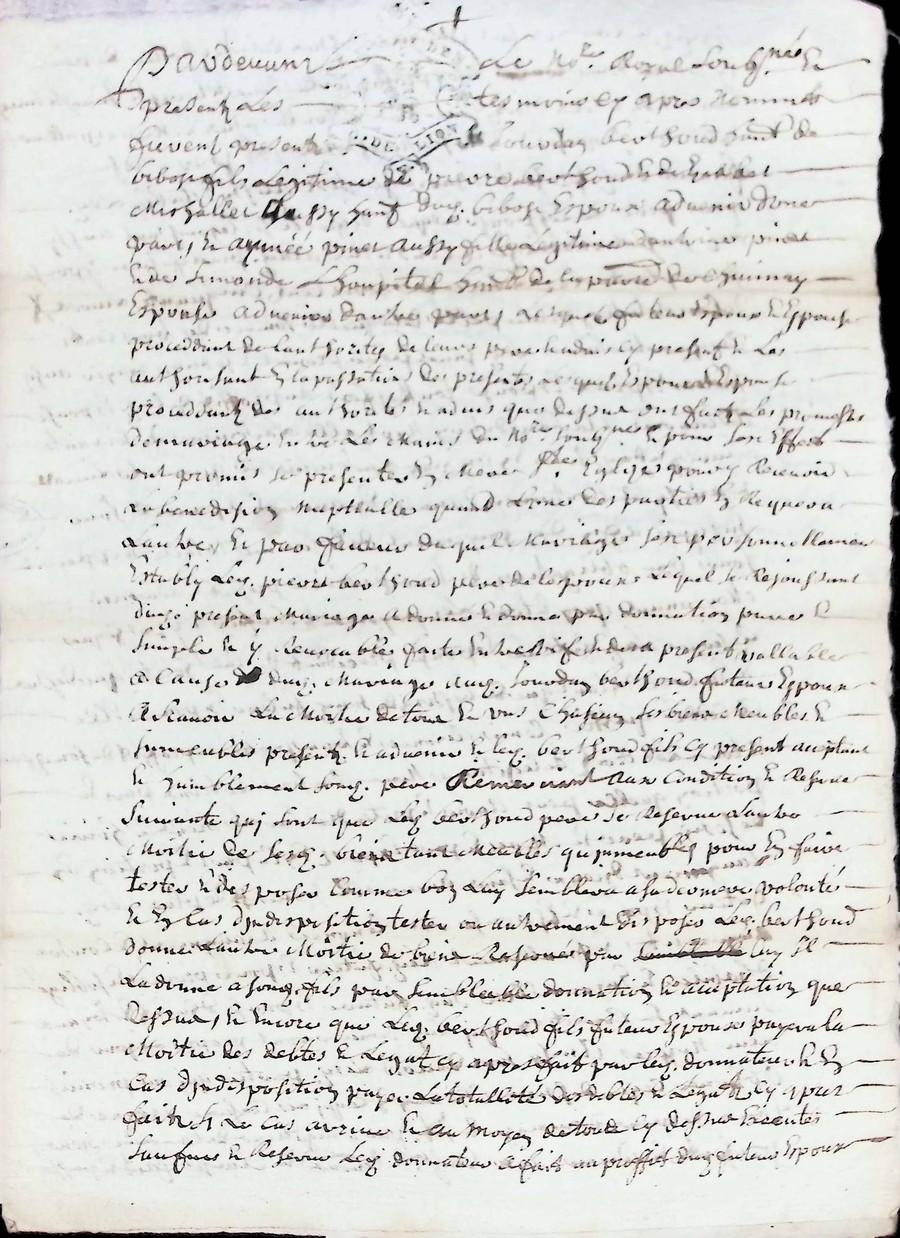 Pardevant Le No.re Royal soubs.né Et
presents Les tesmoins cy apres nommés
furent presents Jourdan berthoud hant de
bibost fils Legitime de pierre berthoud & de
Michallet aussy hant dud. bibost Espoux advenir d'une
part, & aymée pinet aussy fille Legitime d'antoine pinet
& de Simonde Lhospital hant de la paroisse de
Espouse advenir d'autre part, Lesquels futeurs Espoux & Espouse
procedant de L'authorité de leurs peres cy present & Les
authorisant En la passation des presentes Lesquels Espoux & Espouse
procedants des authorités & advis que dessus ont faict Les promesses
de mariage Entre Les mains du No.re soubs.né Et pour son Effect
ont promis se presenter En n.re mere s.te Eglise pour y Recevoir
La benediction nuptialle quand L'une des parties En Requera
L'autre, Et par faveur duquel Mariage s'est personnellement
Estably Led. pierre berthoud pere de L'espoux Lequel se Rejouissant
dud. present Mariage a donné & donne par donnation pure &
simple & yrrevocable faite Entre vifs des a present vallable
a Cause dud. Mariage aud. Jourdan berthoud futeur Espoux
A scavoir La Moitié de tous Et uns Chascun ses biens Meubles &
jmmeubles presents & advenir & led. berthoud fils cy present aceptant
& humblement sond. pere Remerciant aux Condition & Reserve
suivante quj sont que Led. berthoud pere se Reserve L'autre
Moitié de sesd. biens tant Meubles qu jmeubles pour En faire
tester & disposer Comme bon Luy semblera a sa derniere volonté
& En Cas d'jndisposition tester ou autrement disposer Led. berthoud
donne L'autre Moitié de biens Reservés par Luy Il
La donne a sond. fils par semblable donnation & aceptation que
dessus, & Encore que Led. berthoud fils futeur Espoux payera la
Moitié des debtes & Legats cy apres fait par led. donnateur & En
Cas d'jndisposition payer La totallité des debtes & Legats Cy apres
faits si Le Cas arrive & au moyen de tout Cy dessus Excepté
sauf & Reserve Led. donnateur a fait au proffict dud. futeur Espoux